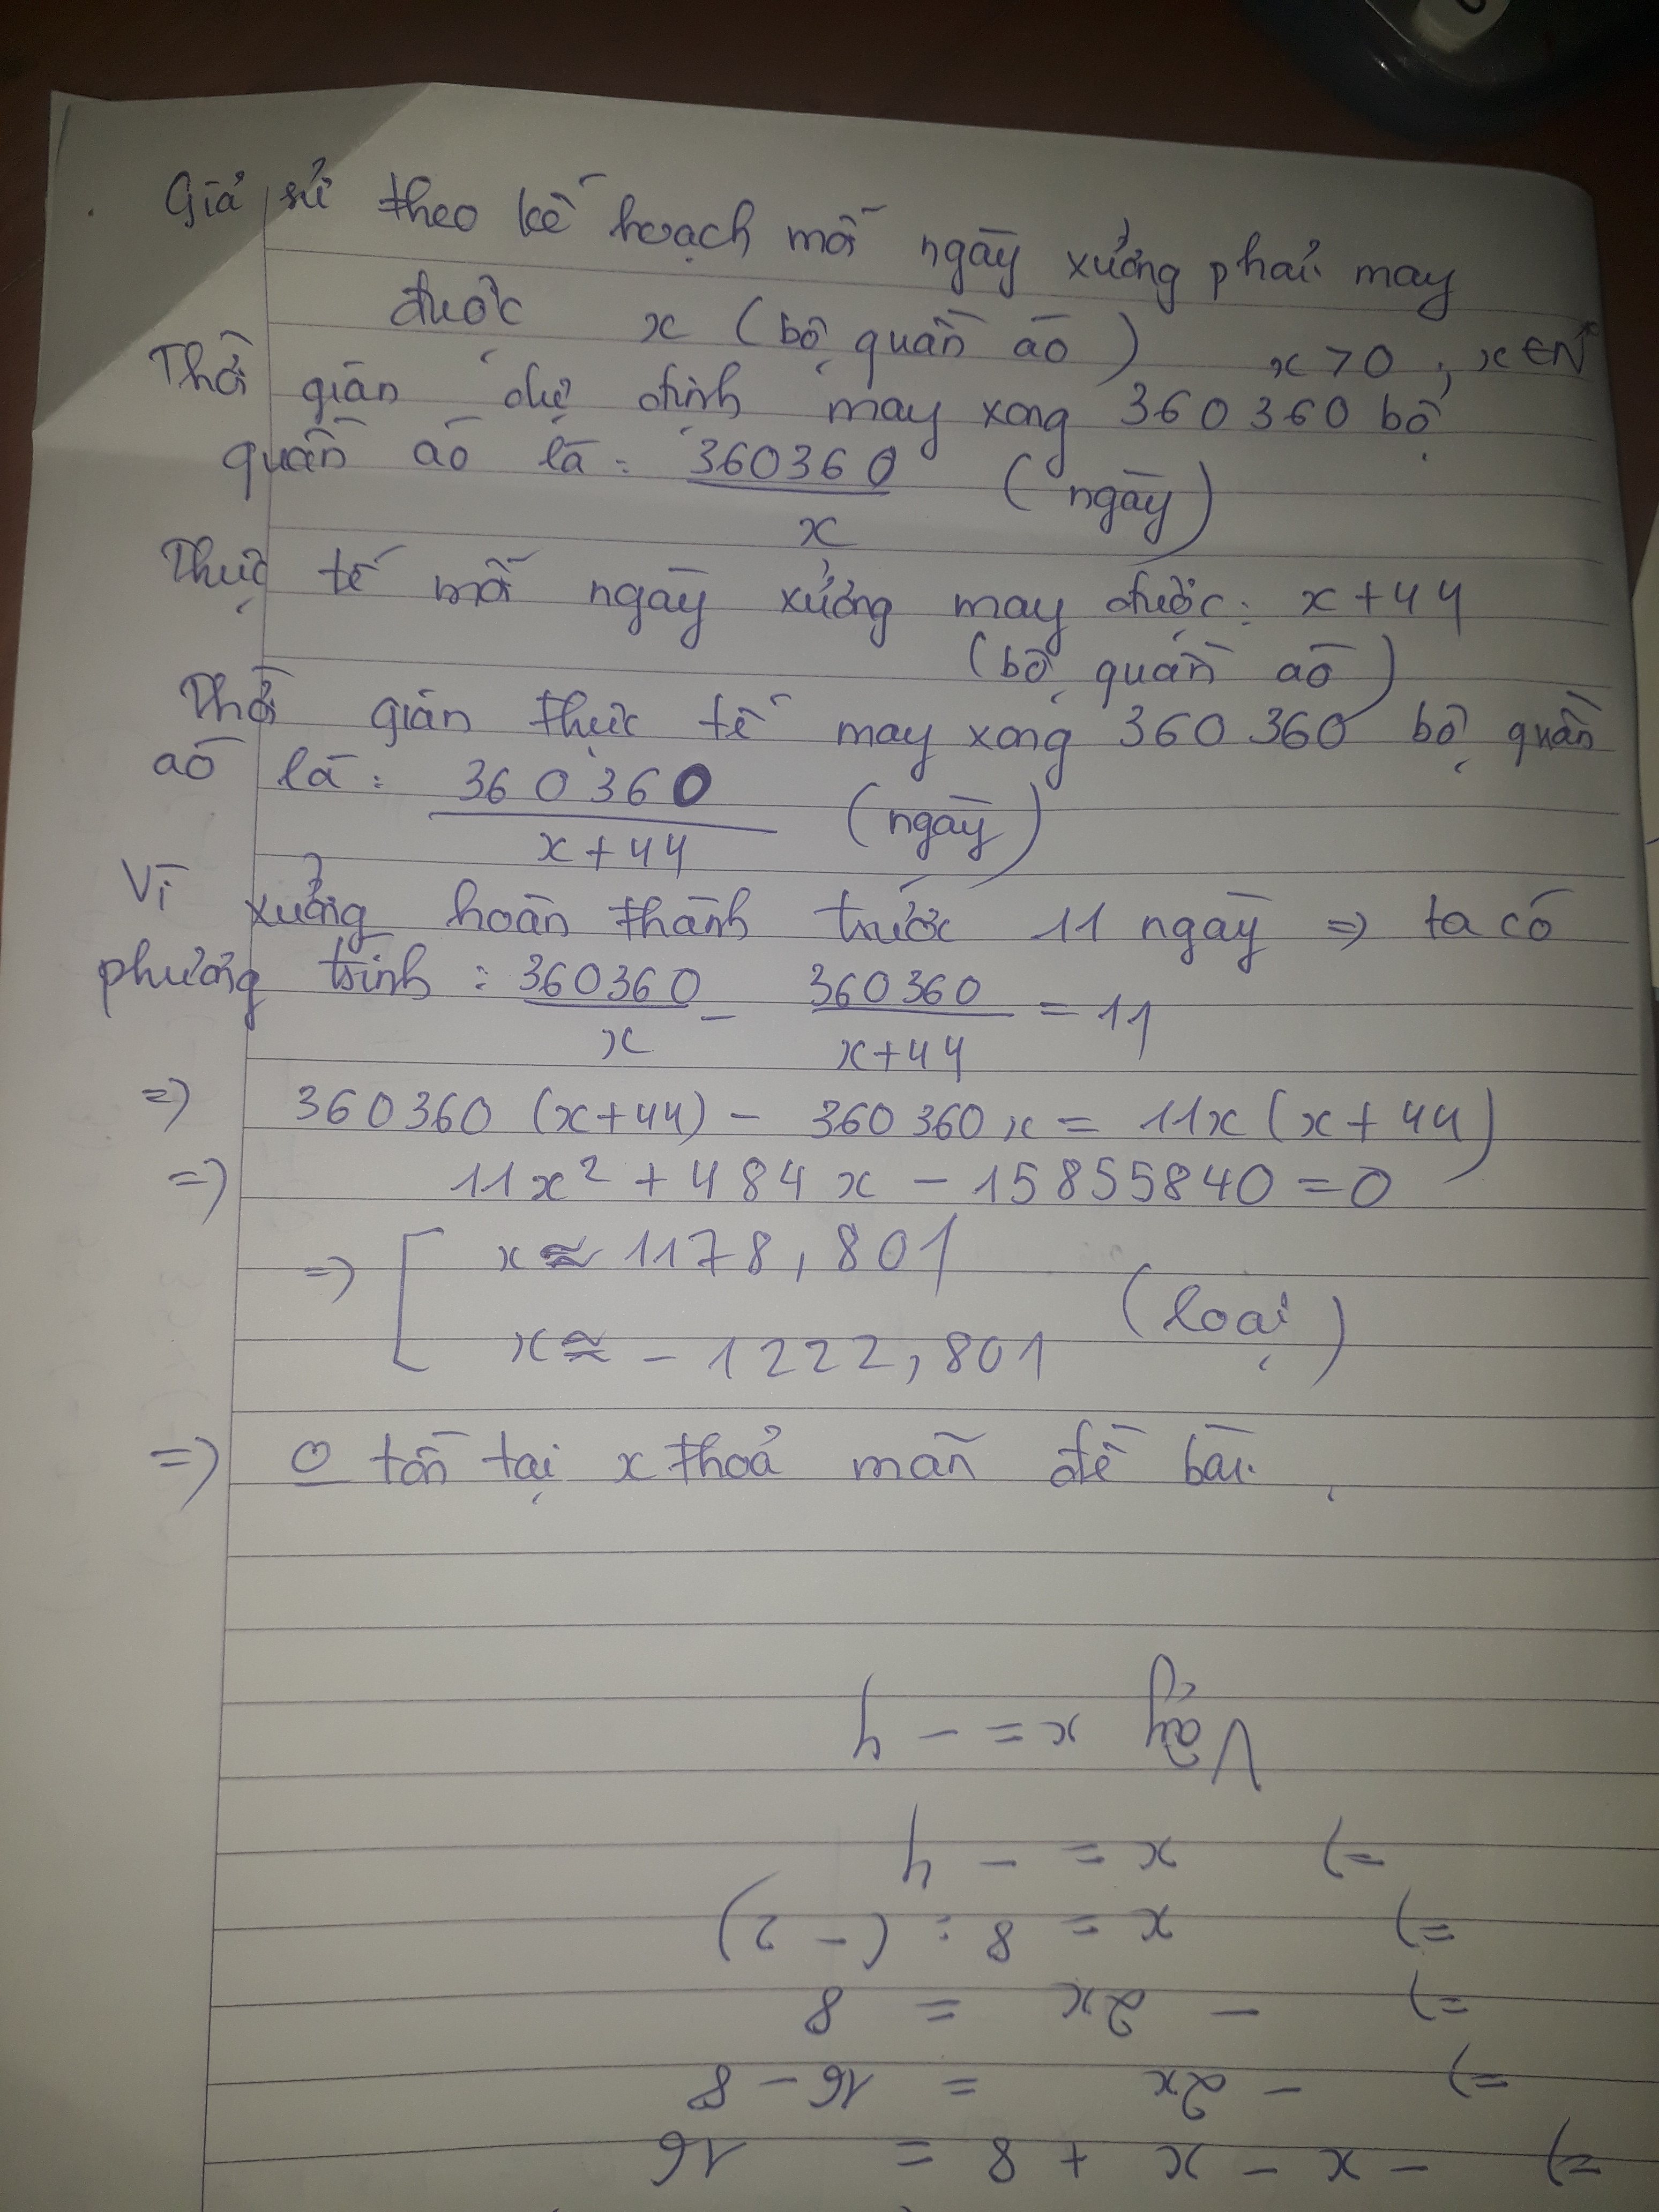 Giả sử theo kế hoạch mỗi ngày xưởng phải may
được x (bộ quần áo) x > 0 ; x ∈ N*
Thời gian dự định may xong 360 360 bộ
quần áo là : 360360/x (ngày)
Thực tế mỗi ngày xưởng may được : x + 44
(bộ quần áo)
Thời gian thực tế may xong 360 360 bộ quần
áo là : 360 360/(x + 44) (ngày)
Vì xưởng hoàn thành trước 11 ngày => ta có
phương trình : 360360/x - 360360/(x+44) = 11
=> 360360 (x+44) - 360360x = 11x (x + 44)
=> 11x² + 484x - 15855840 = 0
=> [ x ≈ 1178,801
x ≈ - 1222,801 (loại)
=> O tồn tại x thoả mãn đề bài.
=) - x - x + 8 = 16
=) - 2x = 16 - 8
=) - 2x = 8
=) x = 8 : (-2)
=) x = - 4
Vậy x = - 4